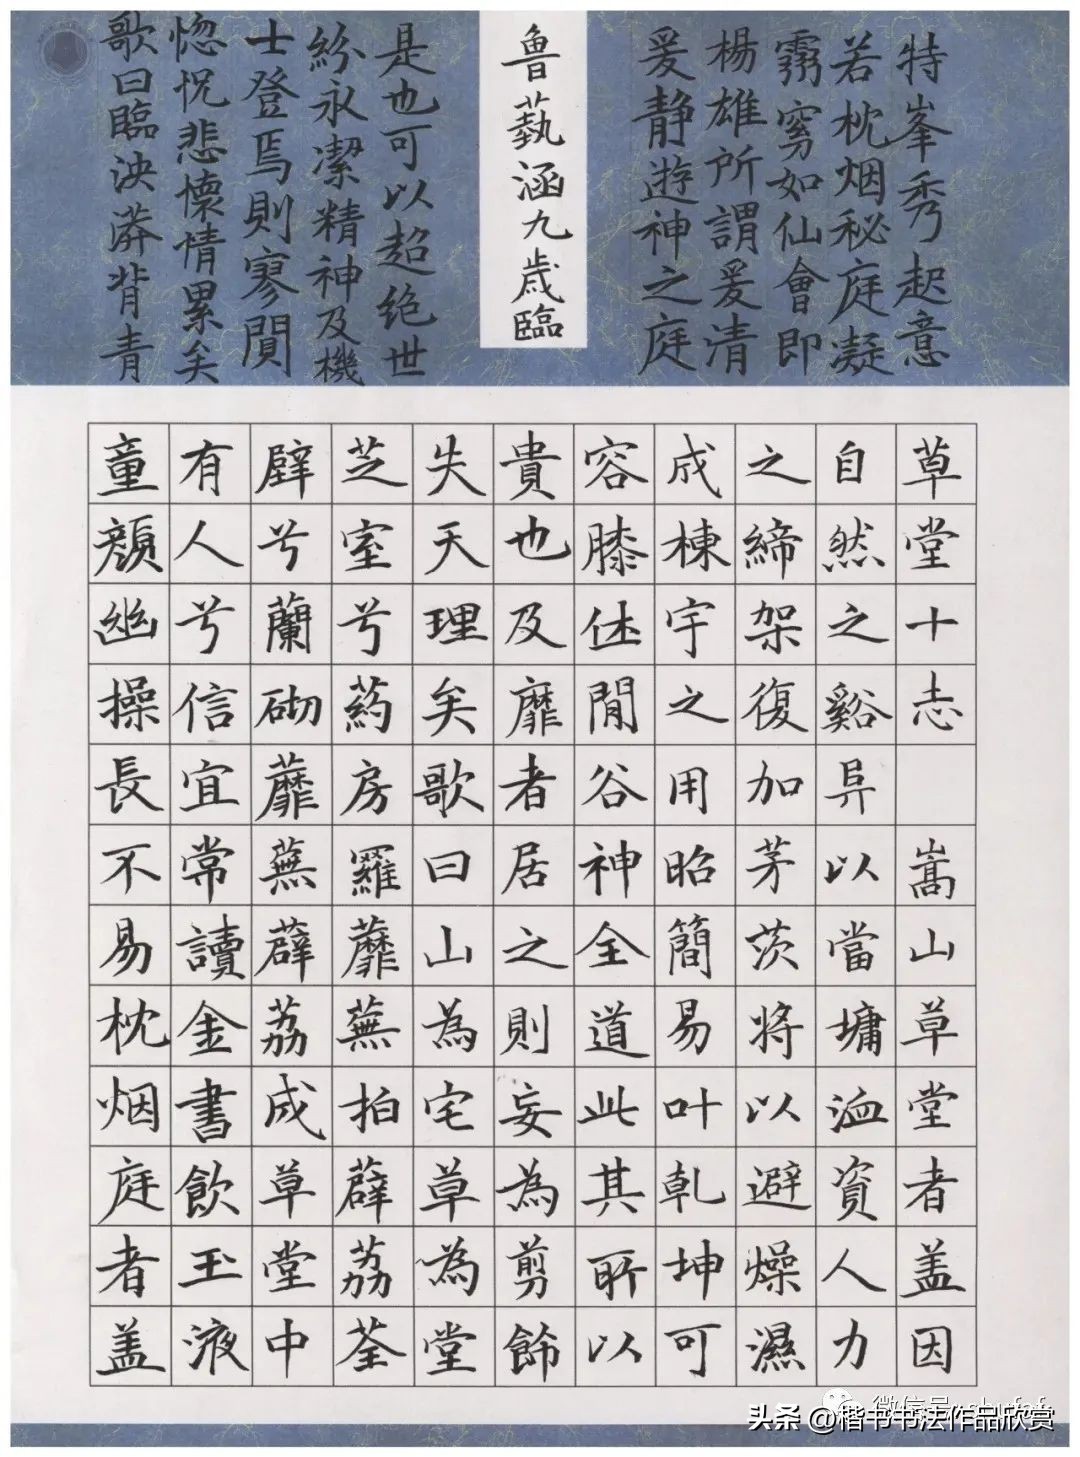 特峯秀起意
若枕烟秘庭凝
窈如仙會即
楊雄所謂爰清
爰静遊神之庭
魯藝涵九歲臨
是也可以超绝世
紛永潔精神及機
士登焉則寥閴
惚怳悲懷情累矣
歌曰臨泱漭背青
草堂十志 嵩山草堂者盖因
自然之谿阜以當墉洫資人力
之締架復加茅茨將以避燥濕
成棟宇之用昭簡易叶乾坤可
容膝休閒谷神全道此其所以
貴也及靡者居之則妄為剪飾
失天理矣歌曰山為宅草為堂
芝室兮葯房羅蘼蕪拍薜荔荃
壁兮蘭砌蘼蕪薜荔成草堂中
有人兮信宜常讀金書飲玉液
童顏幽操長不易枕烟庭者盖
头条 @楷书书法作品欣赏